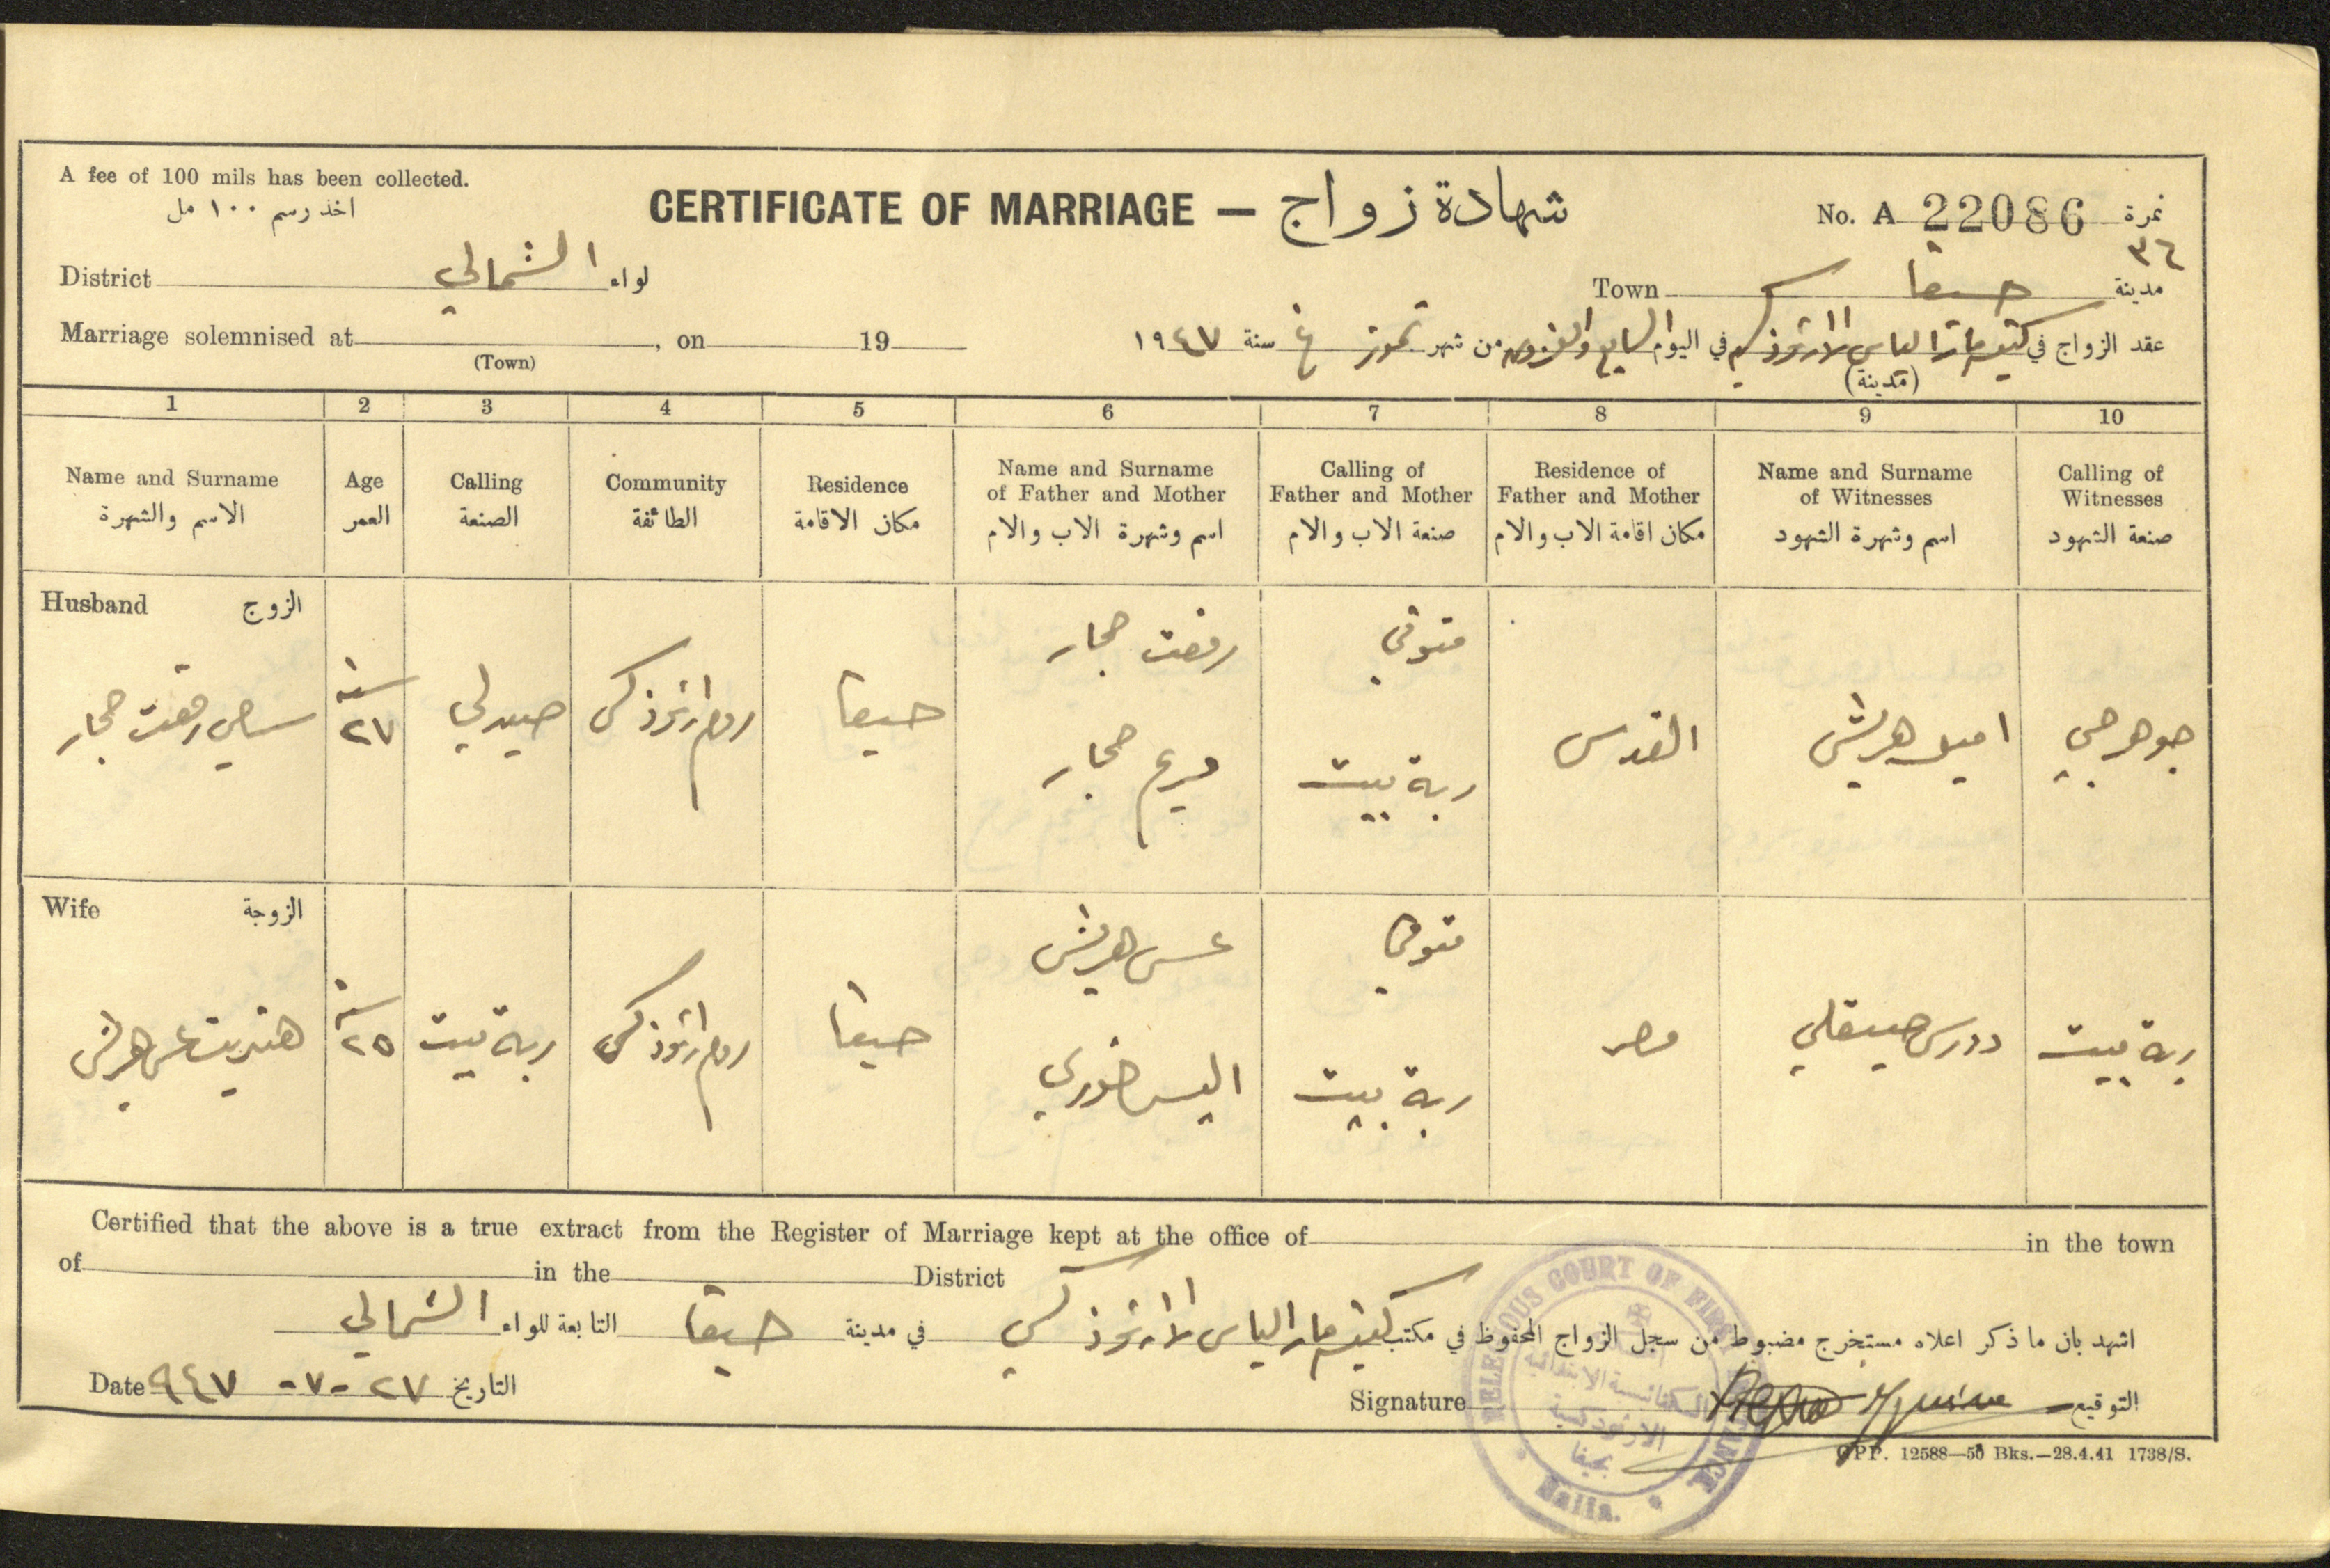 A fee of 100 mils has been collected.
اخذ رسم ١٠٠ مل
CERTIFICATE OF MARRIAGE — شهادة زواج
No. A 22086 نمرة
٣٦
District الشمالي لواء
Town حيفا مدينة
Marriage solemnised at , on 19
(Town)
عقد الزواج في كنيسة مار الياس الارثوذكسية في اليوم السابع والعشرون من شهر تموز سنة ١٩٤٧
(مدينة)
1 2 3 4 5 6 7 8 9 10
Name and Surname
الاسم والشهرة
Age
العمر
Calling
الصنعة
Community
الطائفة
Residence
مكان الاقامة
Name and Surname
of Father and Mother
اسم وشهرة الاب والام
Calling of
Father and Mother
صنعة الاب والام
Residence of
Father and Mother
مكان اقامة الاب والام
Name and Surname
of Witnesses
اسم وشهرة الشهود
Calling of
Witnesses
صنعة الشهود
Husband الزوج
سامي رفعت حجار
سنة
٢٧
صيدلي
روم ارثوذكس
حيفا
رفعت حجار
مريم حجار
متوفي
ربة بيت
القدس
اميل هريش
جوهرجي
Wife الزوجة
هنرييت هريش
سنة
٢٥
ربة بيت
روم ارثوذكس
حيفا
هريش
اليس خوري
متوفي
ربة بيت
مصر
دورس صيقلي
ربة بيت
Certified that the above is a true extract from the Register of Marriage kept at the office of in the town
of in the District
اشهد بان ما ذكر اعلاه مستخرج مضبوط من سجل الزواج المحفوظ في مكتب كنيسة مار الياس الارثوذكسي في مدينة حيفا التابعة للواء الشمالي
Date ٢٧ -٧- ٩٤٧ التاريخ
Signature التوقيع
RELIGIOUS COURT OF FIRST INSTANCE
الكنائسية الابتدائية
الارثوذكسية
بحيفا
Haifa.
GPP. 12588—50 Bks.—28.4.41 1738/S.